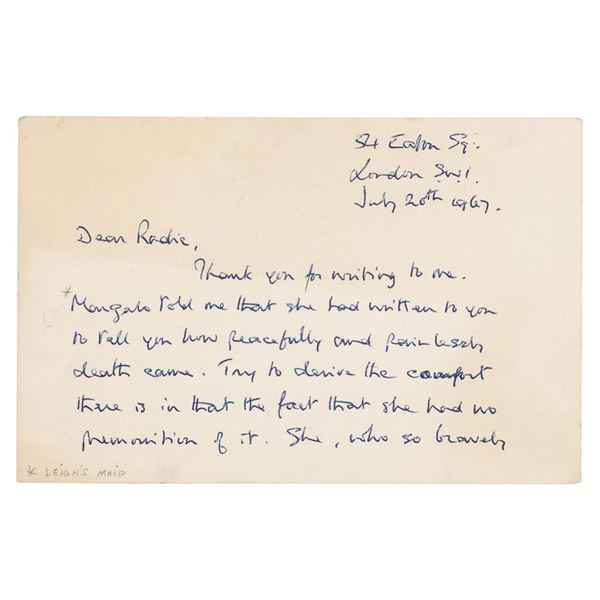 54 Eaton Sq.
London S.W.1.
July 20th 1967.
Dear Radie,
Thank you for writing to me.
* told me that she had written to you
to tell you how peacefully and painlessly
death came. Try to derive the comfort
there is in that the fact that she had no
premonition of it. She, who so bravely
* LEIGH'S MAID